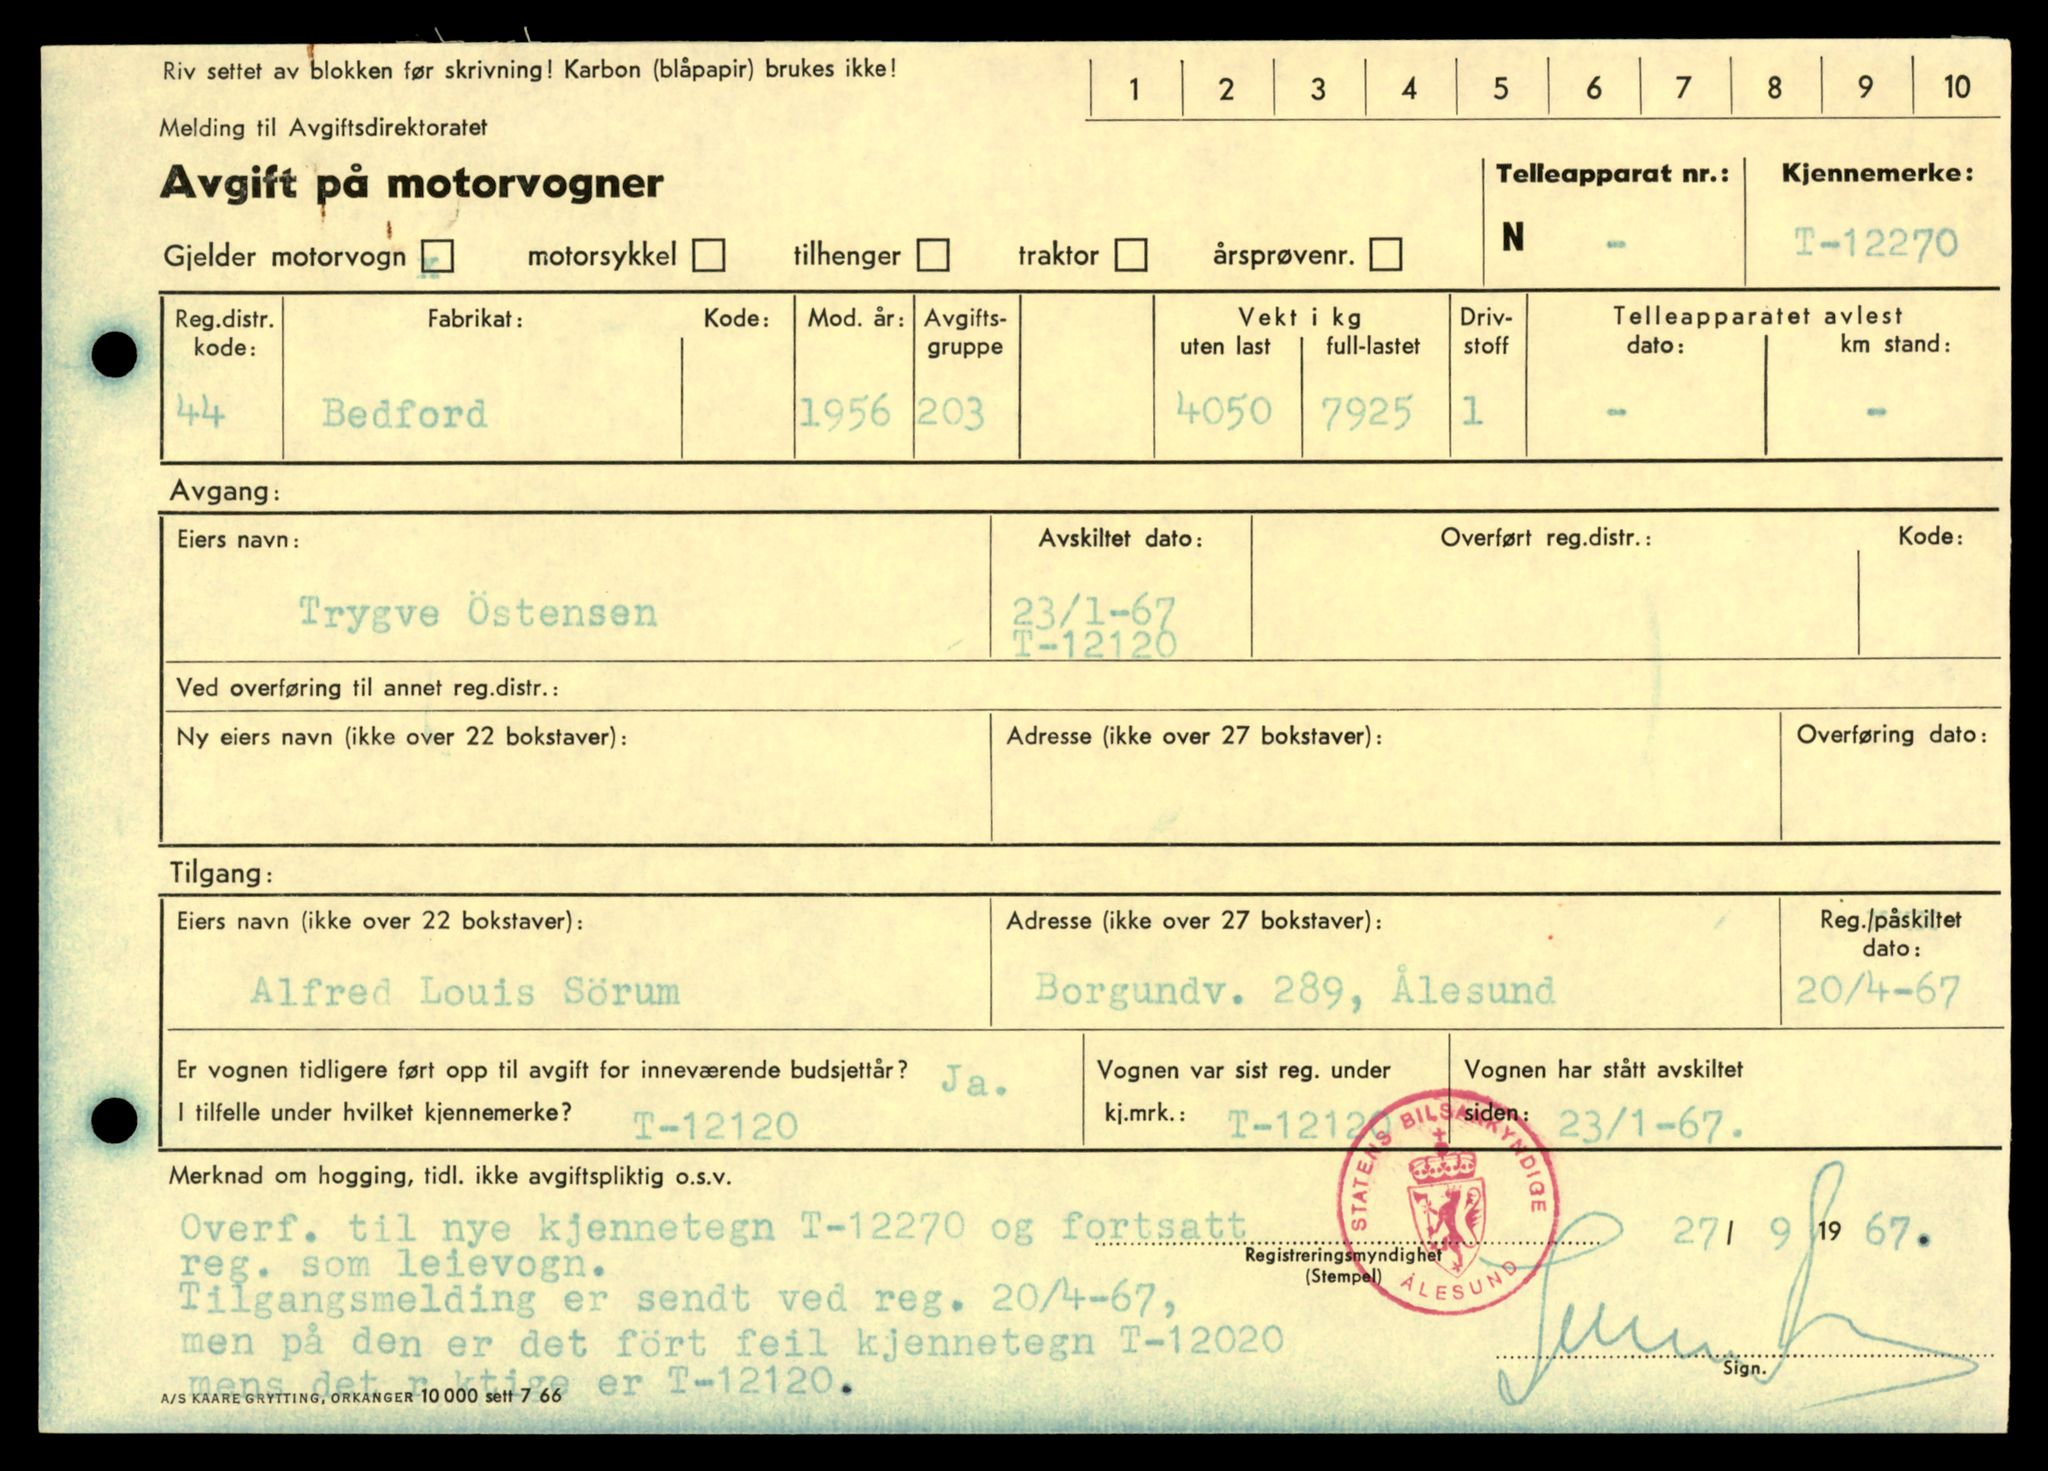 Riv settet av blokken før skrivning! Karbon (blåpapir) brukes ikke!
1 2 3 4 5 6 7 8 9 10
Melding til Avgiftsdirektoratet
Avgift på motorvogner
Telleapparat nr.: Kjennemerke:
N - T-12270
Gjelder motorvogn x motorsykkel tilhenger traktor årsprøvenr.
Reg.distr. kode: Fabrikat: Kode: Mod. år: Avgifts-gruppe Vekt i kg Driv-stoff Telleapparatet avlest
uten last full-lastet dato: km stand:
44 Bedford 1956 203 4050 7925 1 - -
Avgang:
Eiers navn: Avskiltet dato: Overført reg.distr.: Kode:
Trygve Östensen 23/1-67
T-12120
Ved overføring til annet reg.distr.:
Ny eiers navn (ikke over 22 bokstaver): Adresse (ikke over 27 bokstaver): Overføring dato:
Tilgang:
Eiers navn (ikke over 22 bokstaver): Adresse (ikke over 27 bokstaver): Reg./påskiltet
dato:
Alfred Louis Sörum Borgundv. 289, Ålesund 20/4-67
Er vognen tidligere ført opp til avgift for inneværende budsjettår? Ja. Vognen var sist reg. under Vognen har stått avskiltet
I tilfelle under hvilket kjennemerke? T-12120 kj.mrk.: T-12120 siden: 23/1-67.
Merknad om hogging, tidl. ikke avgiftspliktig o.s.v.
STATENS BILSAKKYNDIGE
ÅLESUND
Overf. til nye kjennetegn T-12270 og fortsatt
27/ 9 1967.
Registreringsmyndighet
(Stempel)
reg. som leievogn.
Tilgangsmelding er sendt ved reg. 20/4-67,
men på den er det fört feil kjennetegn T-12020
Sign.
mens det r ktige er T-12120.
A/S KAARE GRYTTING, ORKANGER 10 000 sett 7 66